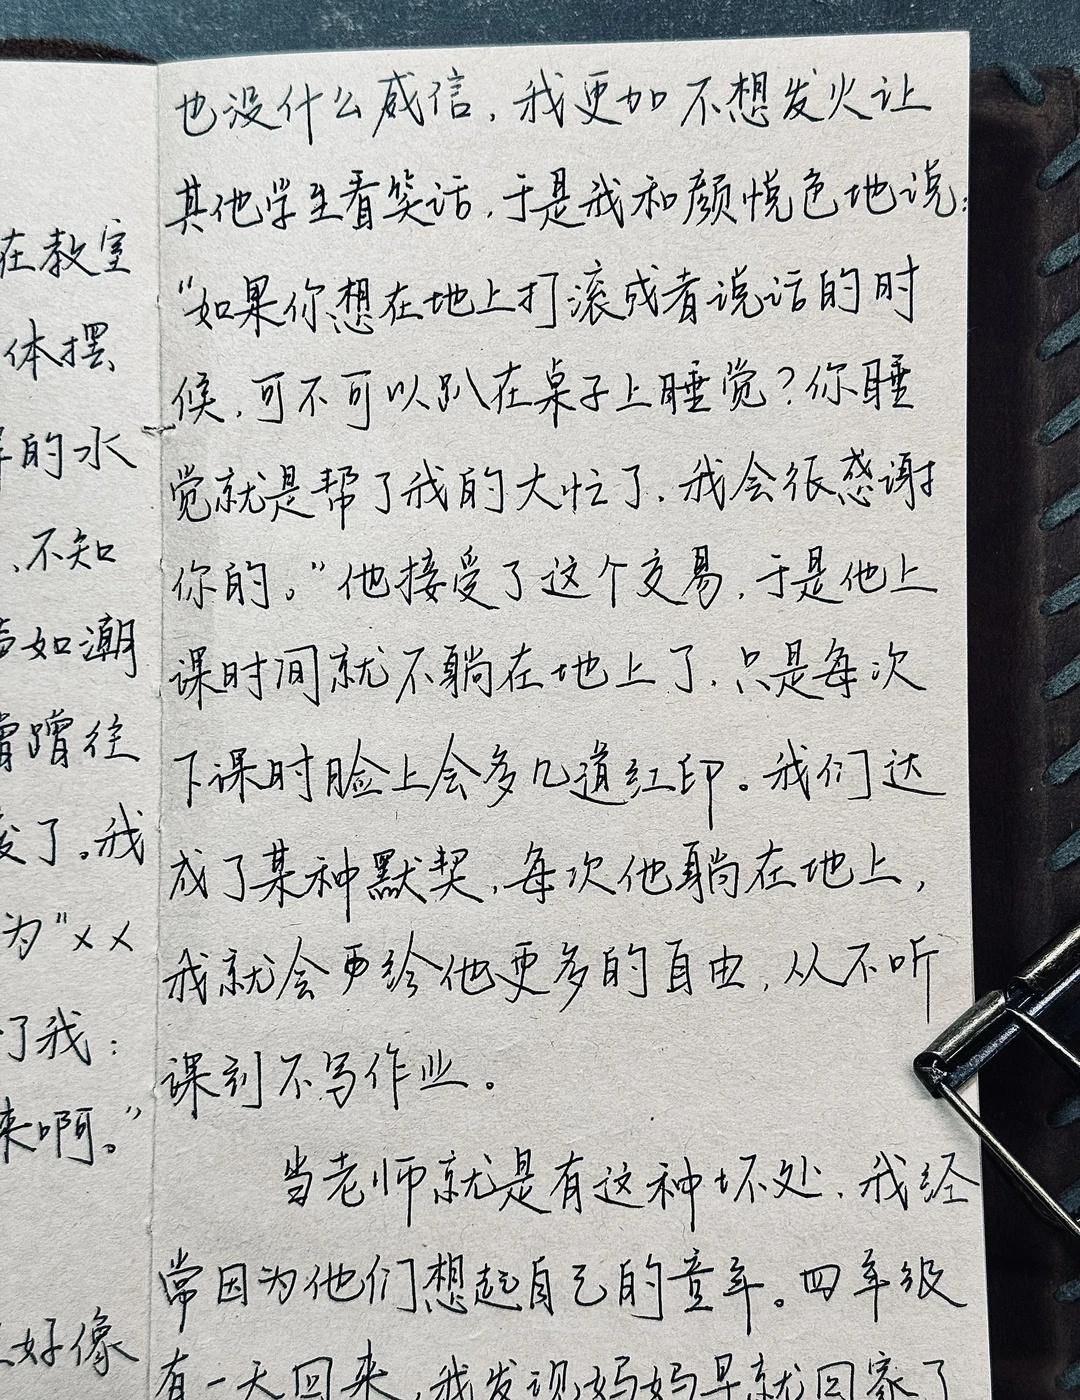 在教室
体摆
的水
、不知
如潮
蹭往
了。我
为“××
了我：
来啊。”
好像
也没什么威信，我更加不想发火让
其他学生看笑话，于是我和颜悦色地说：
“如果你想在地上打滚或者说话的时
候，可不可以趴在桌子上睡觉？你睡
觉就是帮了我的大忙了，我会很感谢
你的。”他接受了这个交易，于是他上
课时间就不躺在地上了，只是每次
下课时脸上会多几道红印。我们达
成了某种默契，每次他躺在地上，
我就会更给他更多的自由，从不听
课到不写作业。
当老师就是有这种坏处，我经
常因为他们想起自己的童年。四年级
有一天回来，我发现妈妈早就回家了